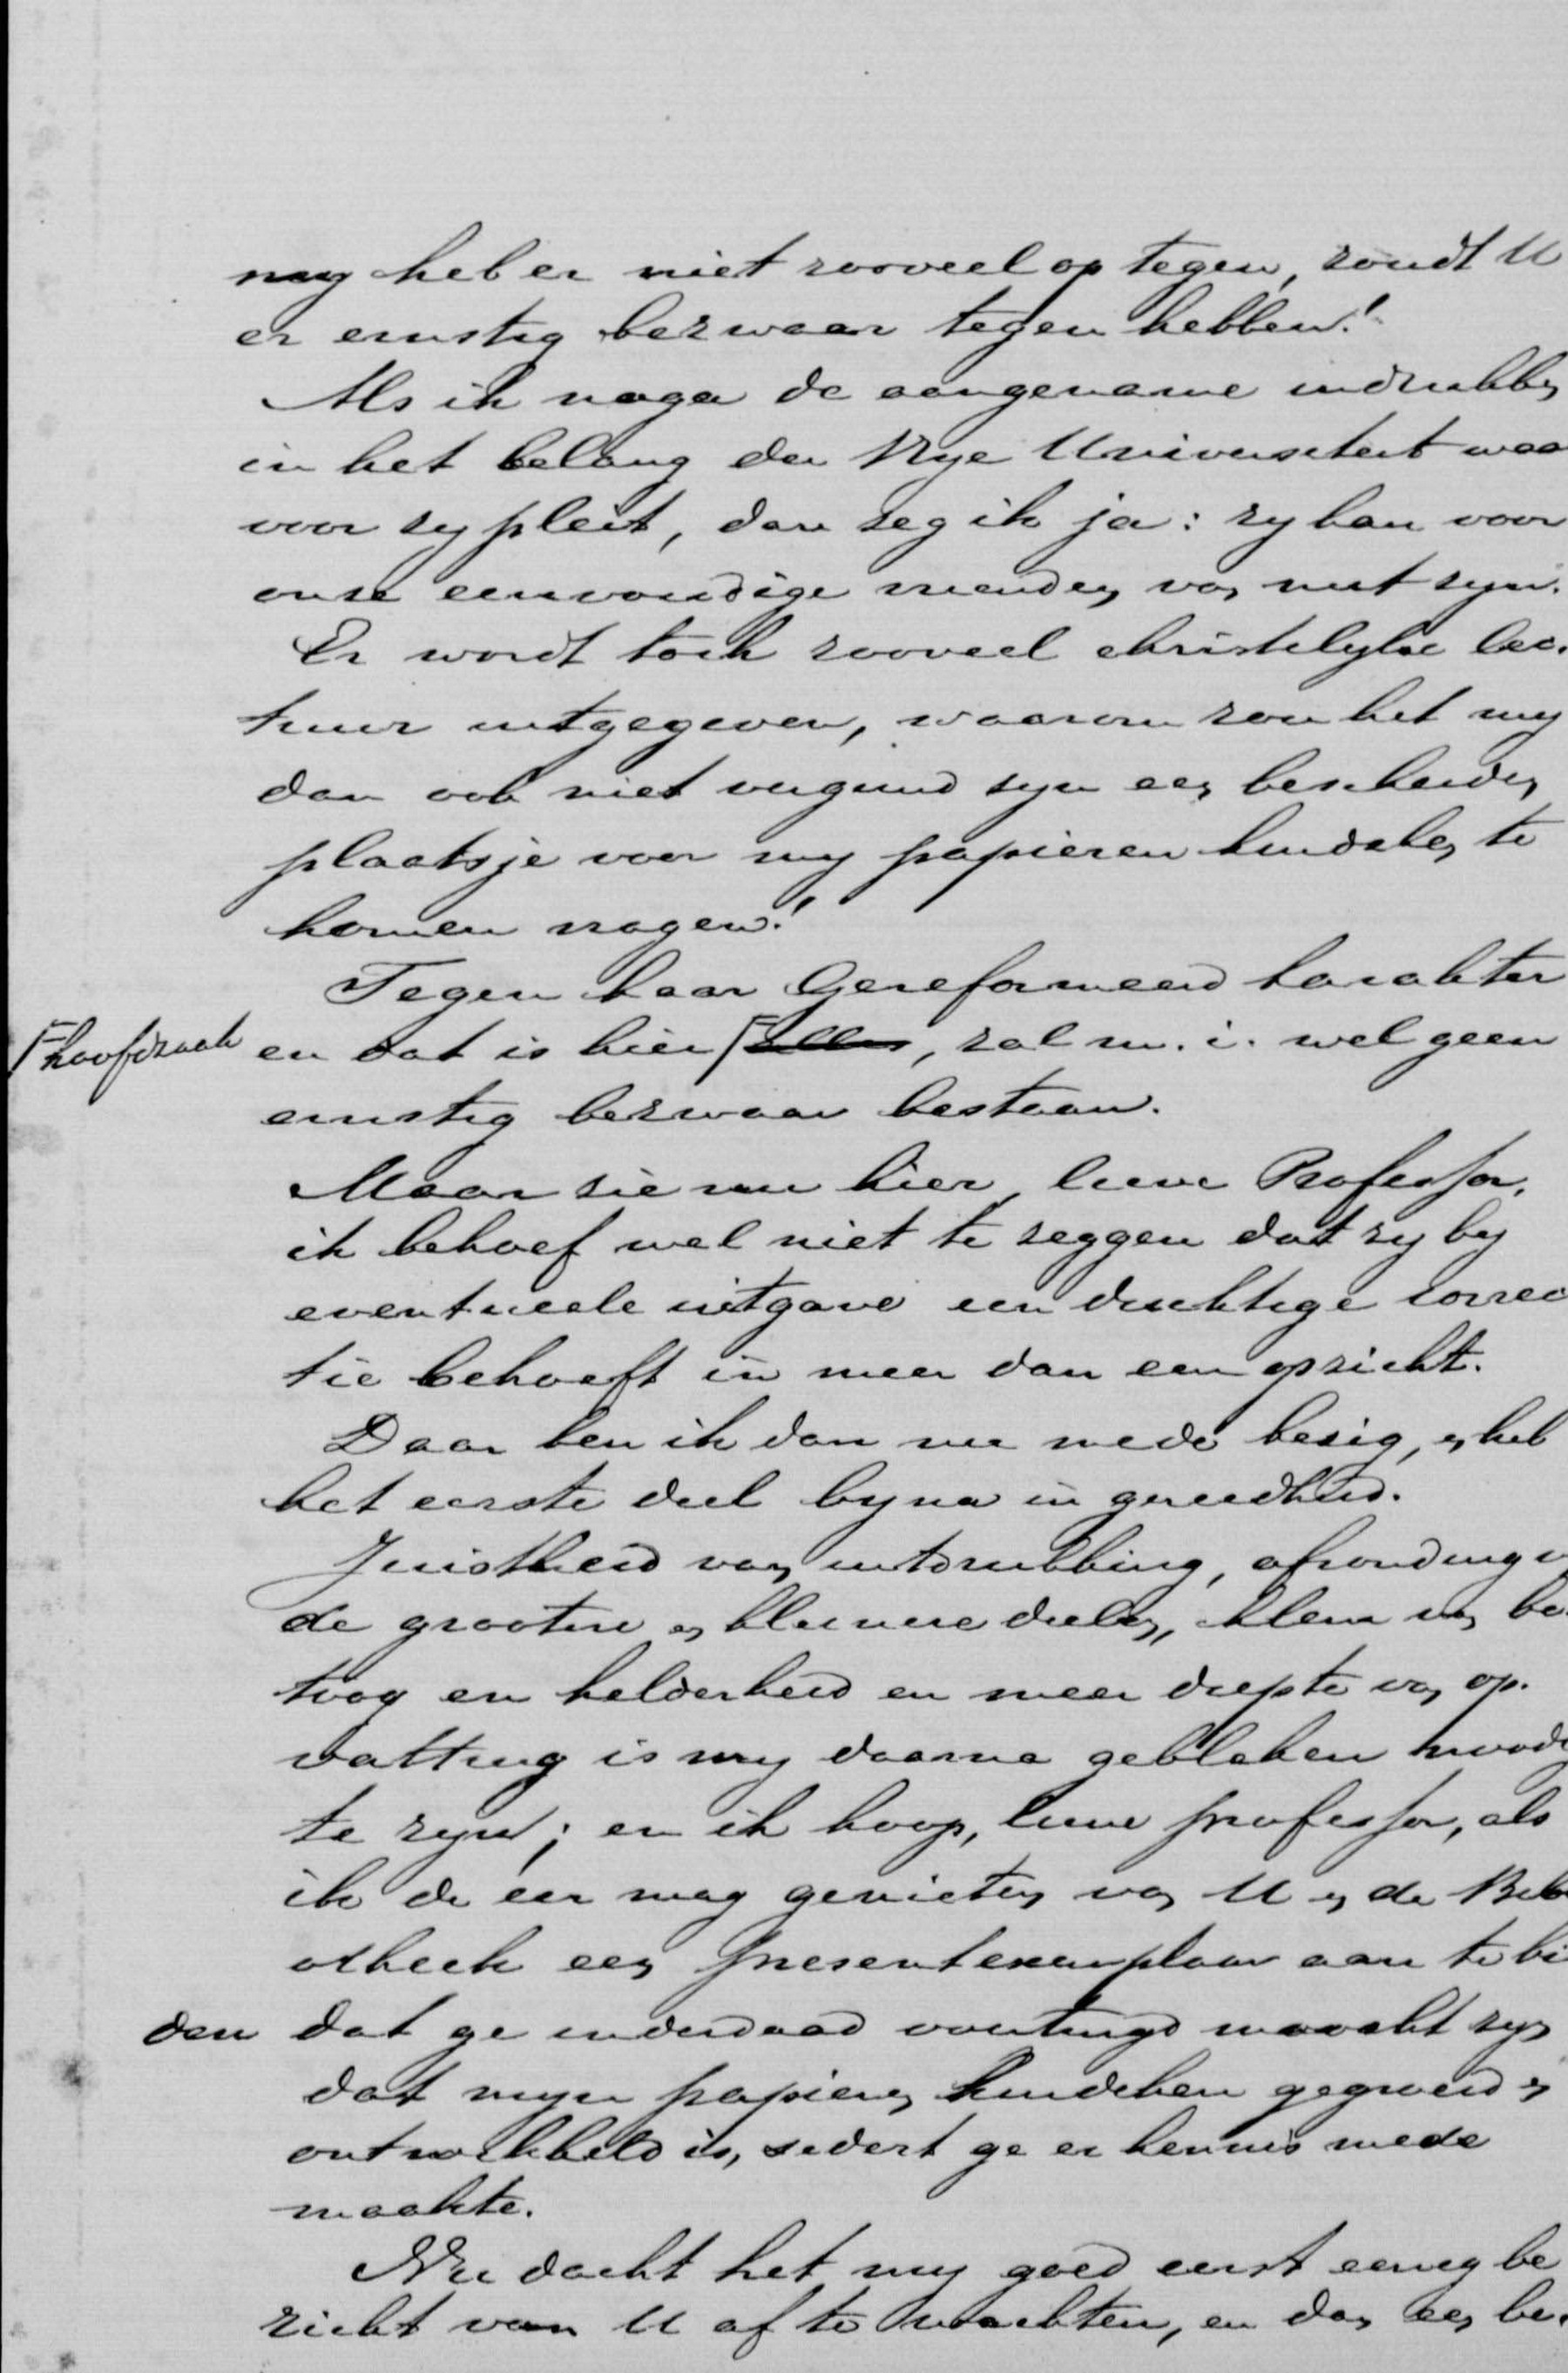 my heb er niet zooveel op tegen, zoudt U
er ernstig bezwaar tegen hebben!
Als ik naga de aangename indrukken
in het belang der Vrye Universiteit waar
voor zy pleit, dan zeg ik ja: zy kan voor
onze eenvoudige vrienden van nut zyn.
Er wordt toch zooveel christelyke lec-
tuur uitgegeven, waarom zou het my
dan ook niet vergund zyn een bescheiden
plaatsje voor my papieren kindeke te
komen vragen!
Tegen haar Gereformeerd karakter
en dat is hier alles, zal m. i. wel geen
hoofdzaak
ernstig bezwaar bestaan.
Maar zie nu hier, lieve Professor,
ik behoef wel niet te zeggen dat zy by
eventueele uitgave een duchtige correc
tie behoeft in meer dan een opzicht.
Daar ben ik dan nu mede bezig, en heb
het eerste deel byna in gereedheid.
Juistheid van uitdrukking, afronding v
de grootere en kleinere deelen, klem van be-
toog en helderheid en meer diepte van op-
vatting is my daarna gebleken noodig
te zyn; en ik hoop, lieve professor, als
ik de eer mag genieten van U en de Bibli
otheek een presentexemplaar aan te bie
den dat ge inderdaad overtuigd moocht zyn
dat myn papieren kindeken gegroeid en
ontwikkeld is, sedert ge er kennis mede
maakte.
Nu dacht het my goed eerst eenig be
richt van U af te wachten, en dan een be-